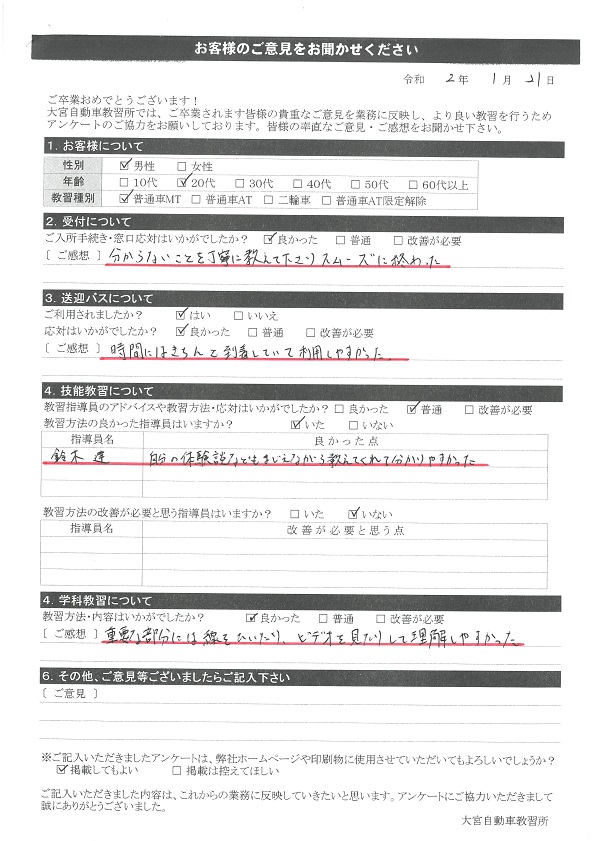 お客様のご意見をお聞かせください
令和 2 年 1 月 21 日
ご卒業おめでとうございます！
大宮自動車教習所では、ご卒業されます皆様の貴重なご意見を業務に反映し、より良い教習を行うため
アンケートのご協力をお願いしております。皆様の率直なご意見・ご感想をお聞かせ下さい。
1. お客様について
性別 ☑男性 □女性
年齢 □10代 ☑20代 □30代 □40代 □50代 □60代以上
教習種別 ☑普通車MT □普通車AT □二輪車 □普通車AT限定解除
2. 受付について
ご入所手続き・窓口応対はいかがでしたか？ ☑良かった □普通 □改善が必要
[ ご感想 ] 分からないことを丁寧に教えて下さりスムーズに終わった
3. 送迎バスについて
ご利用されましたか？ ☑はい □いいえ
応対はいかがでしたか？ ☑良かった □普通 □改善が必要
[ ご感想 ] 時間にはきちんと到着していて利用しやすかった。
4. 技能教習について
教習指導員のアドバイスや教習方法・応対はいかがでしたか？ □良かった ☑普通 □改善が必要
教習方法の良かった指導員はいますか？ ☑いた □いない
指導員名 良かった点
鈴木 達 自分の体験談などもまじえながら教えてくれて分かりやすかった
教習方法の改善が必要と思う指導員はいますか？ □いた ☑いない
指導員名 改善が必要と思う点
4. 学科教習について
教習方法・内容はいかがでしたか？ ☑良かった □普通 □改善が必要
[ ご感想 ] 重要な部分には線をひいたり、ビデオを見たりして理解しやすかった
6. その他、ご意見等ございましたらご記入下さい
[ ご意見 ]
※ご記入いただきましたアンケートは、弊社ホームページや印刷物に使用させていただいてもよろしいでしょうか？
☑掲載してもよい □掲載は控えてほしい
ご記入いただきました内容は、これからの業務に反映していきたいと思います。アンケートにご協力いただきまして
誠にありがとうございました。
大宮自動車教習所